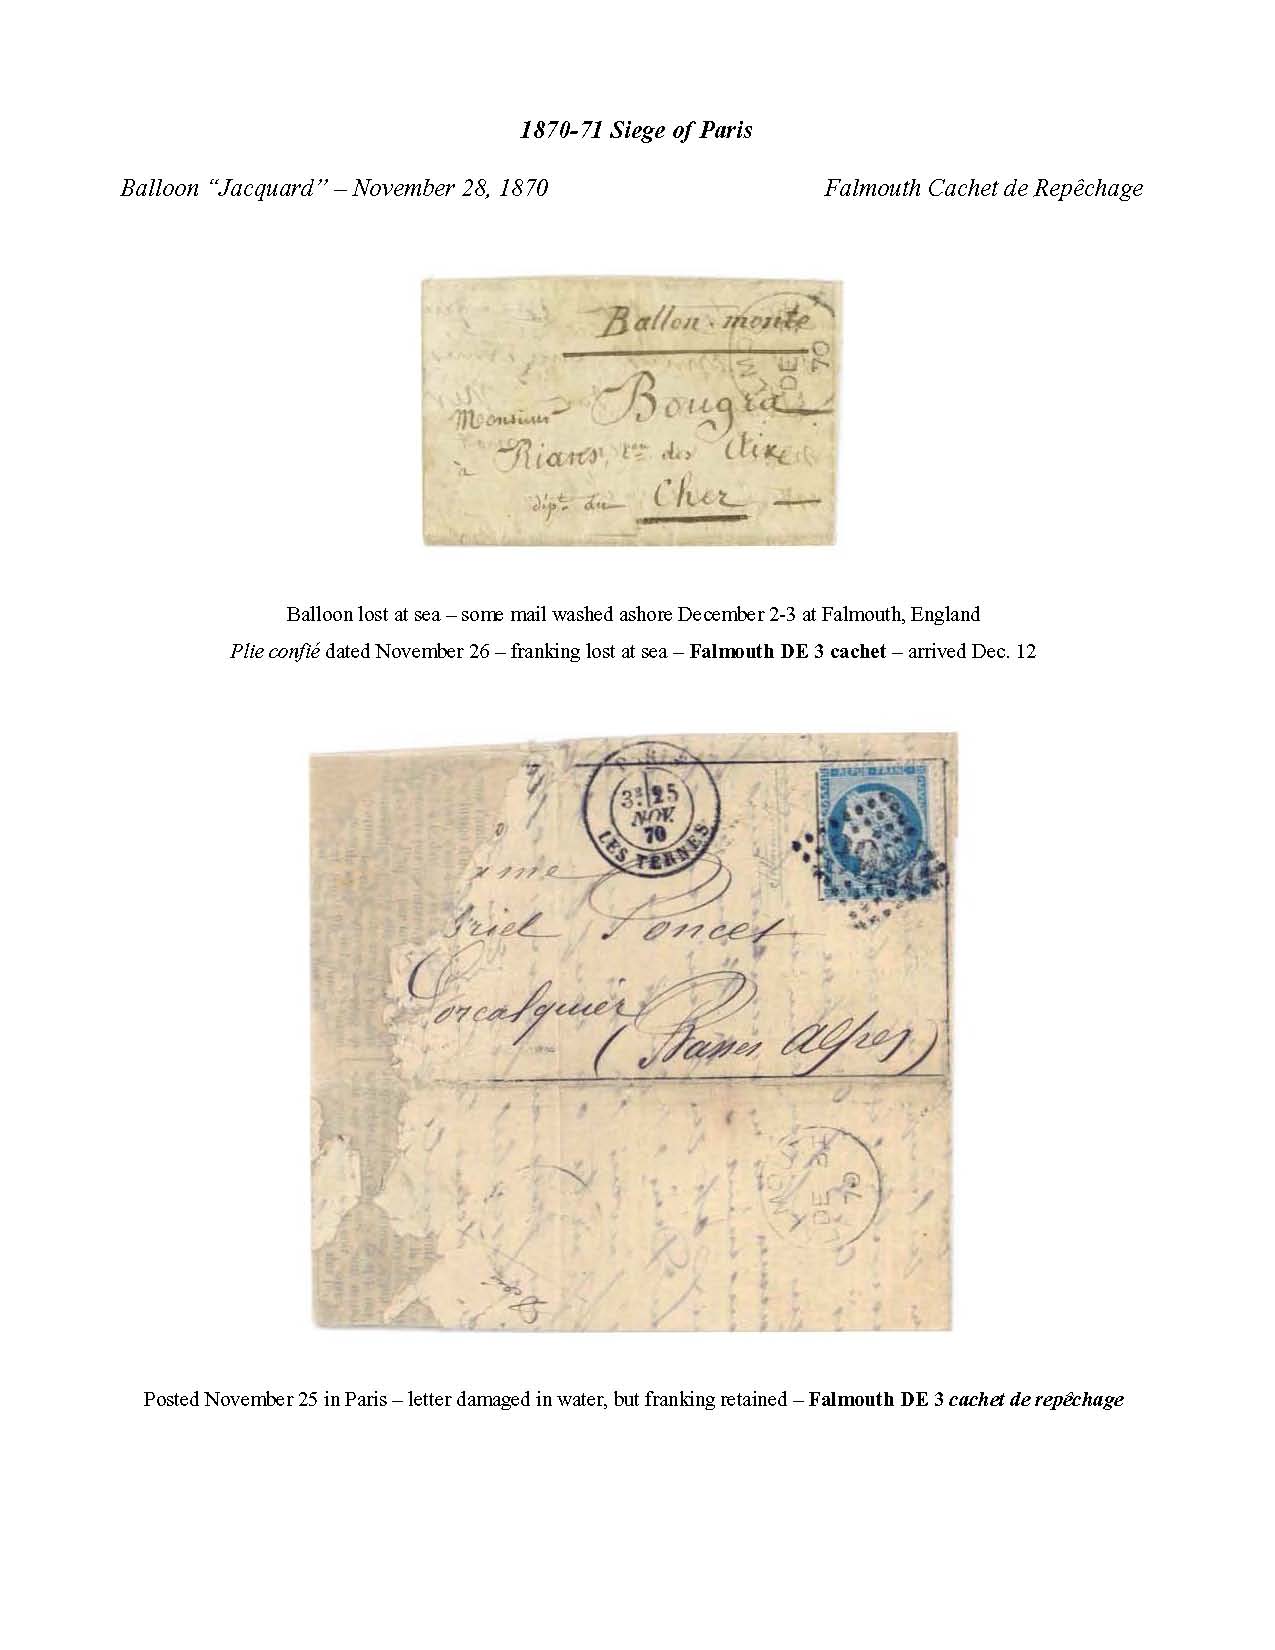 1870-71 Siege of Paris
Balloon “Jacquard” – November 28, 1870
Falmouth Cachet de Repêchage
Ballon monté
Monsieur Bougra
à Rians, des Aix
dépt. du Cher
DE
70
Balloon lost at sea – some mail washed ashore December 2-3 at Falmouth, England
Plie confié dated November 26 – franking lost at sea – Falmouth DE 3 cachet – arrived Dec. 12
PARIS
3E 25
NOV.
70
LES TERNES
REPUB FRANC
ame
briel Poncet
Forcalquier
(Basses Alpes)
DE
70
Posted November 25 in Paris – letter damaged in water, but franking retained – Falmouth DE 3 cachet de repêchage